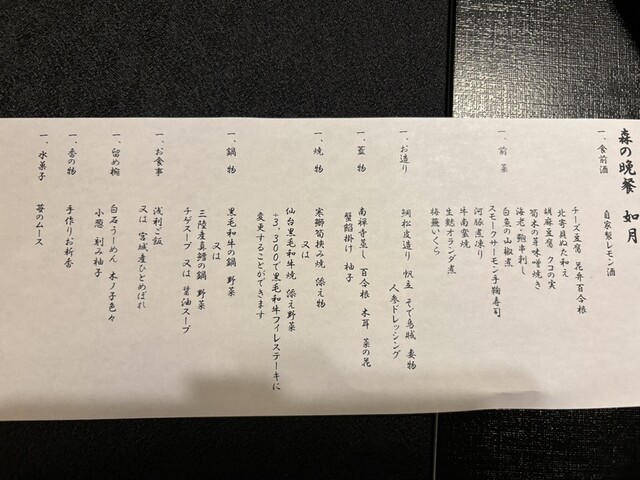 森の晩餐 如月
一、食前酒
自家製レモン酒
一、前菜
チーズ豆腐 花弁百合根
北寄貝ぬた和え
胡麻豆腐 クコの実
筍木の芽味噌焼き
海老・鞄串刺し
白魚の山椒煮
スモークサーモン手鞠寿司
河豚煮凍り
牛南蛮焼
生麩オランダ煮
梅蜜いくら
一、お造り
鯛松皮造り 帆立 そで烏賊 妻物
人参ドレッシング
一、蓋物
南禅寺蒸し 百合根 木耳 菜の花
蟹餡掛け 柚子
一、焼物
寒鰤筍挟み焼 添え物
又は
仙台黒毛和牛焼 添え野菜
+3,300で黒毛和牛フィレステーキに
変更することができます
一、鍋物
黒毛和牛の鍋 野菜
又は
三陸産真鱈の鍋 野菜
チゲスープ 又は 醤油スープ
一、お食事
浅利ご飯
又は 宮城産ひとめぼれ
一、留め椀
白石うーめん 木ノ子色々
小葱 刻み柚子
一、香の物
手作りお新香
一、水菓子
苺のムース